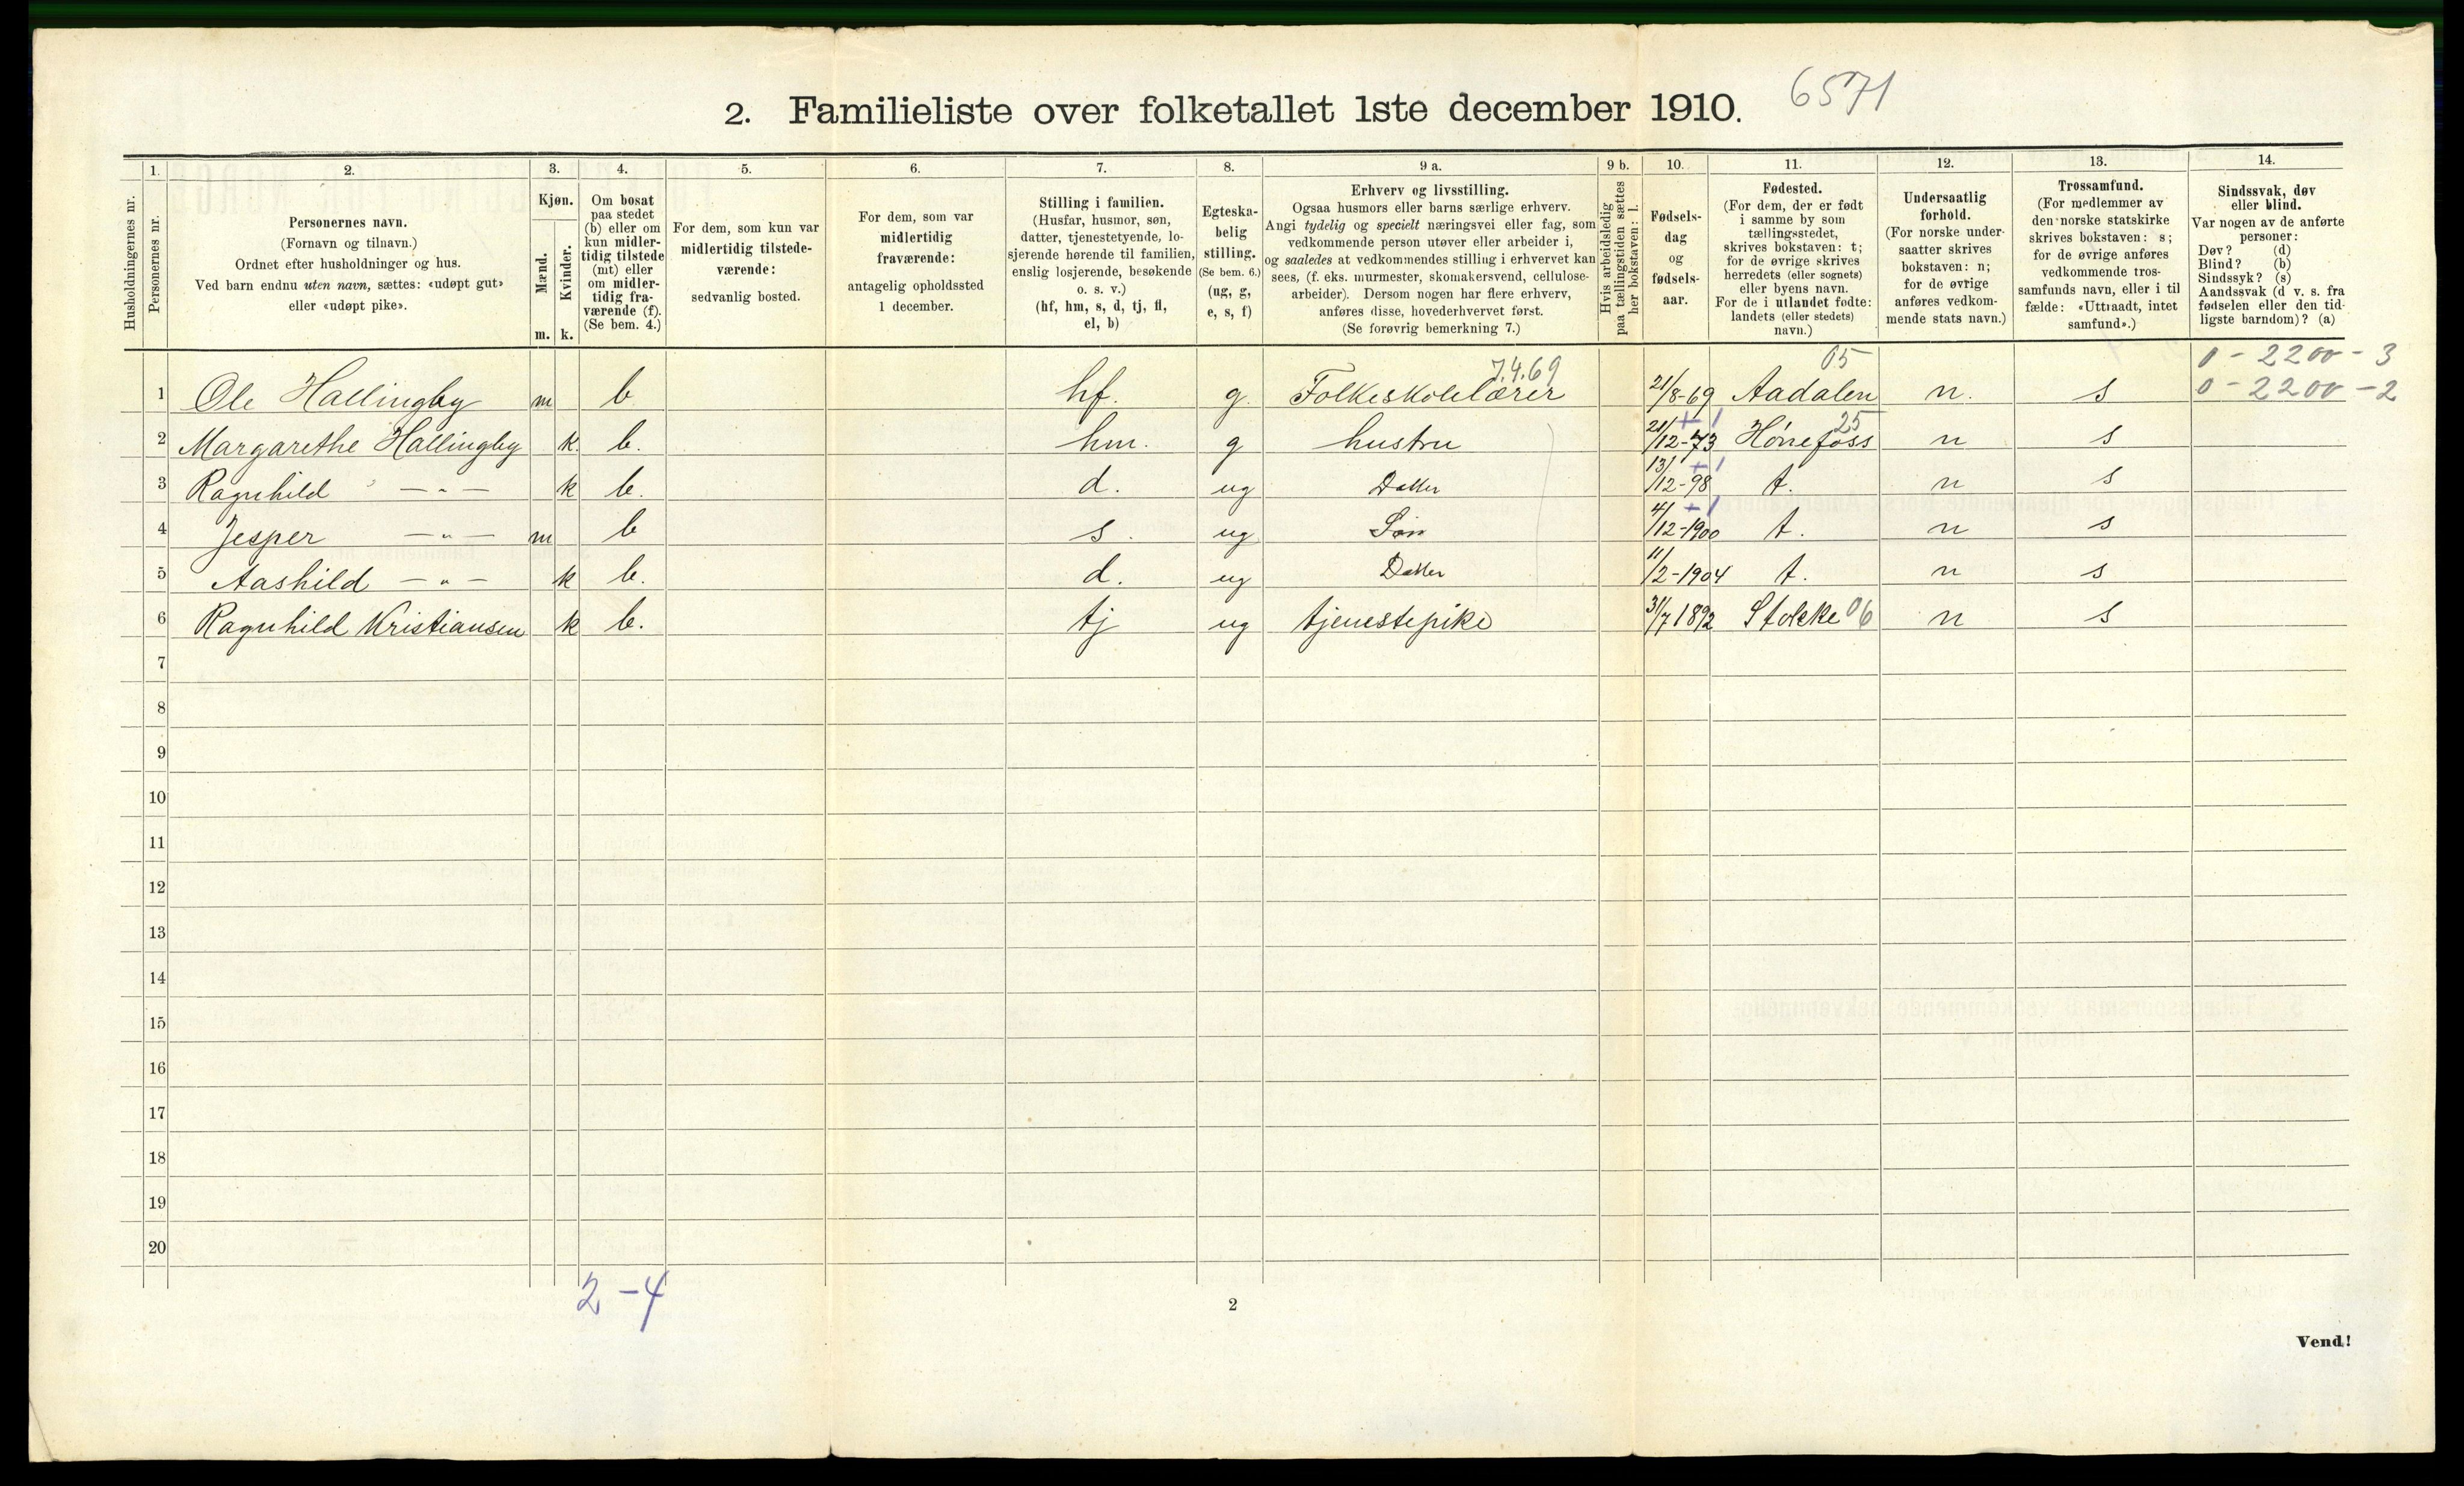 2. Familieliste over folketallet 1ste december 1910. 6571
Husholdningernes nr.
1. Personernes nr.
2. Personernes navn. (Fornavn og tilnavn.) Ordnet efter husholdninger og hus. Ved barn endnu uten navn, sættes: «udøpt gut» eller «udøpt pike».
3. Kjøn. Mænd. m. Kvinder. k.
4. Om bosat paa stedet (b) eller om kun midlertidig tilstede (mt) eller om midlertidig fraværende (f). (Se bem. 4.)
5. For dem, som kun var midlertidig tilstedeværende: sedvanlig bosted.
6. For dem, som var midlertidig fraværende: antagelig opholdssted 1 december.
7. Stilling i familien. (Husfar, husmor, søn, datter, tjenestetyende, losjerende hørende til familien, enslig losjerende, besøkende o. s. v.) (hf, hm, s, d, tj, fl, el, b)
8. Egteskabelig stilling. (Se bem. 6.) (ug, g, e, s, f)
9 a. Erhverv og livsstilling. Ogsaa husmors eller barns særlige erhverv. Angi tydelig og specielt næringsvei eller fag, som vedkommende person utøver eller arbeider i, og saaledes at vedkommendes stilling i erhvervet kan sees, (f. eks. murmester, skomakersvend, cellulosearbeider). Dersom nogen har flere erhverv, anføres disse, hovederhvervet først. (Se forøvrig bemerkning 7.)
9 b. Hvis arbeidsledig paa tællingstiden sættes her bokstaven: l.
10. Fødselsdag og fødselsaar.
11. Fødested. (For dem, der er født i samme by som tællingsstedet, skrives bokstaven: t; for de øvrige skrives herredets (eller sognets) eller byens navn. For de i utlandet fødte: landets (eller stedets) navn.)
12. Undersaatlig forhold. (For norske undersaatter skrives bokstaven: n; for de øvrige anføres vedkommende stats navn.)
13. Trossamfund. (For medlemmer av den norske statskirke skrives bokstaven: s; for de øvrige anføres vedkommende trossamfunds navn, eller i tilfælde: «Uttraadt, intet samfund».)
14. Sindssvak, døv eller blind. Var nogen av de anførte personer: Døv? (d) Blind? (b) Sindssyk? (s) Aandssvak (d v. s. fra fødselen eller den tidligste barndom)? (a)
7.4.69 05 0 - 2200 - 3
1 Ole Hallingby m b hf. g. Folkeskolelærer 21/8-69 Aadalen n. s 0 - 2200 - 2
+ 1 25
2 Margarethe Hallingby k. b. hm. g hustru 21/12-73 Hønefoss n s
+ 1
3 Ragnhild — " — k b. d. ug Datter 13/12-98 t. n s
+ 1
4 Jesper — " — m b s. ug Søn 4/12-1900 t. n s
5 Aashild — " — k b. d. ug Datter 11/2-1904 t. n s
6 Ragnhild Kristiansen k b. tj ug tjenestepike 31/7 1892 Stokke 06 n s
7
8
9
10
11
12
13
14
15
16
17
18
19
20
2 - 4
2
Vend!